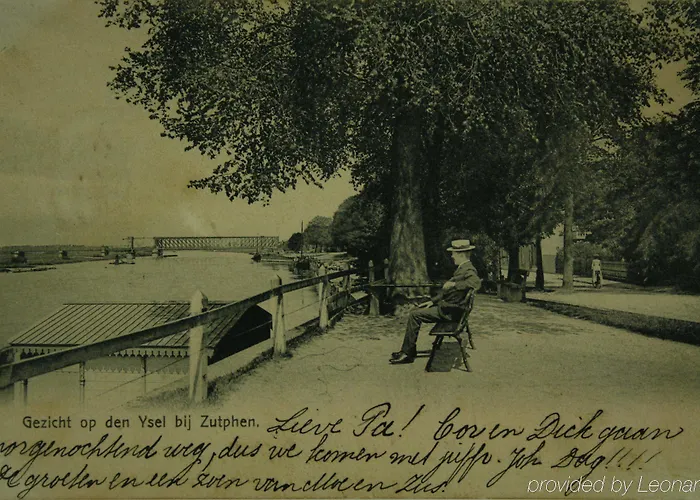 Gezicht op den Ysel bij Zutphen.
Lieve Pa! Cor en Dick gaan
morgenochtend weg, dus we komen met juffr. Joh Dag!!!!
de groeten en een zoen van Moe en Zus.
provided by Leonar